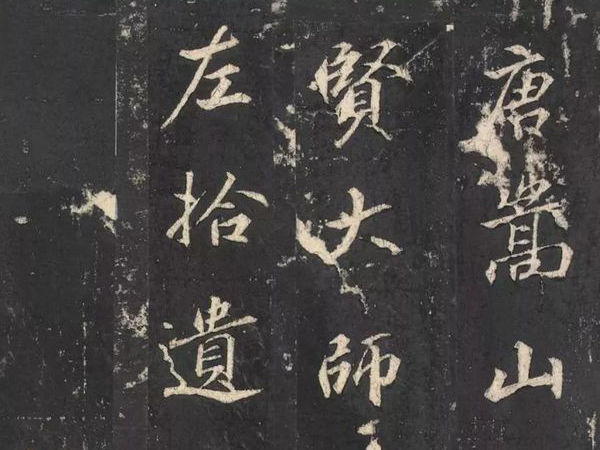 唐嵩山
賢大師
左拾遺